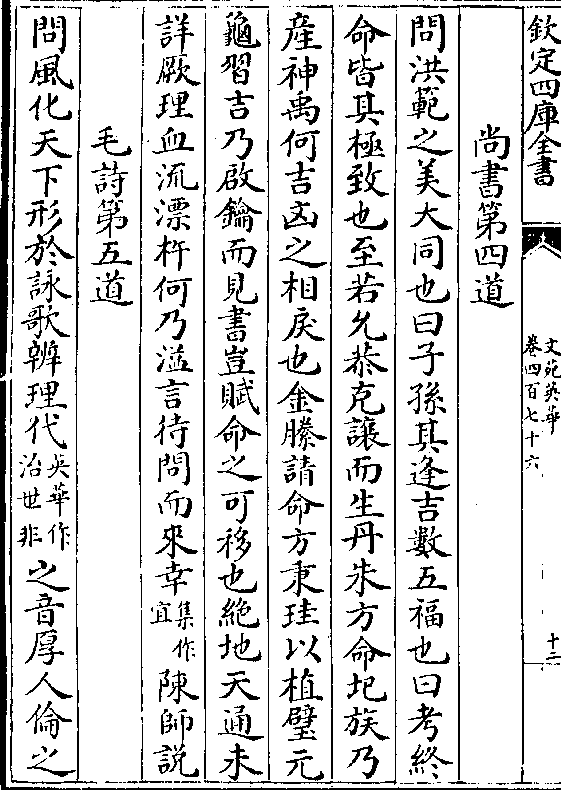 欽定四庫全書
文苑英華
卷四百七十六
十三
尚書第四道
問洪範之美大同也曰子孫其逢吉數五福也曰考終
命皆其極致也至若允恭克讓而生丹朱方命圯族乃
産神禹何吉凶之相戾也金縢請命方秉珪以植璧元
龜習吉乃啟鑰而見書豈賦命之可移也絶地天通未
詳厥理血流漂杵何乃溢言待問而來幸集作宜陳師說
毛詩第五道
問風化天下形於詠歌辨理代英華作治世非之音厚人倫之